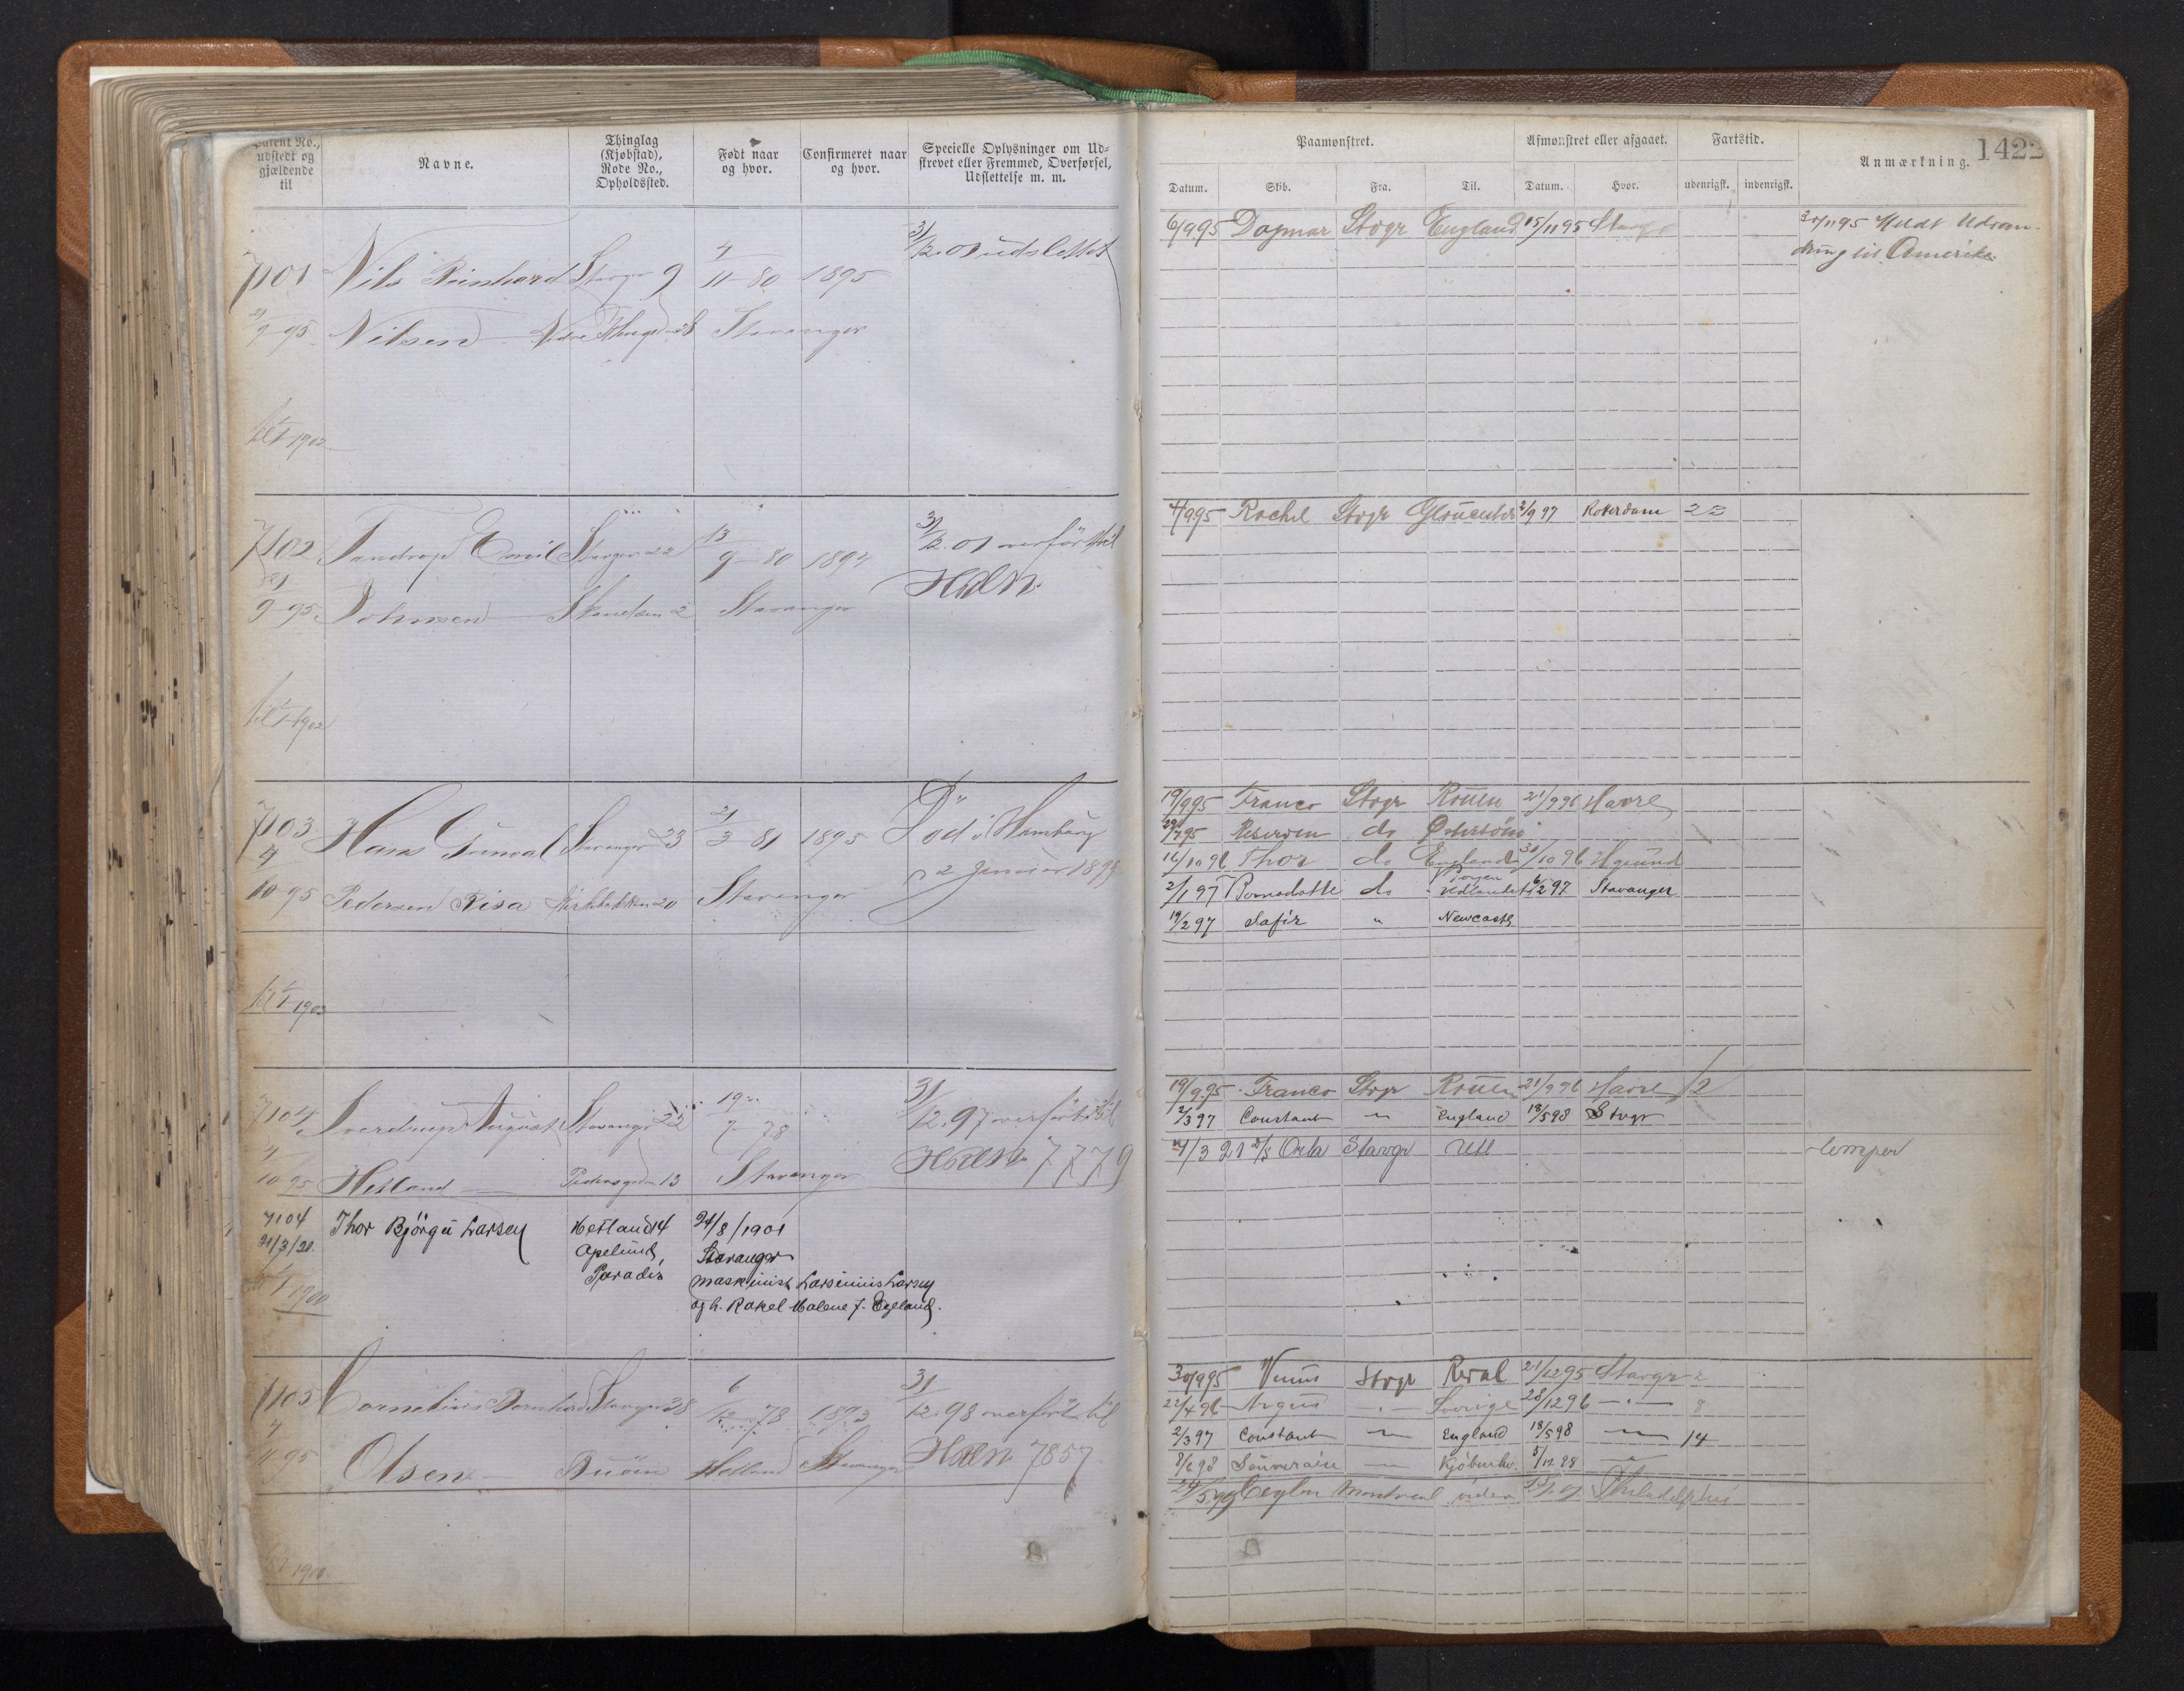 Patent No., udstedt og gjældende til
Navne.
Thinglag (Kjøbstad), Rode No., Opholdssted.
Født naar og hvor.
Confirmeret naar og hvor.
Specielle Oplysninger om Udskrevet eller Fremmed, Overførsel, Udslettelse m. m.
Paamønstret.
Afmønstret eller afgaaet.
Fartstid.
Anmærkning.
1422
Datum. Skib. Fra. Til. Datum. Hvor. udenrigsk. indenrigsk.
7101 Nils Reinhard Stavgr 9 4/11 - 80 1895 31/12. 01 udslettet
9-95 Nilsen Stavanger
til 1/1 1902
6/9 95 Dagmar Stvgr England 15/11 95 Stavgr
11 95 Meldt Udvan-
dring til Amerika
7102 Tandrup Emil Stavgr 22 13/9 - 80 1894 31/12. 01 overført til
9-95 Johnsen 2 Stavanger H A L N.
til 1/1 1902
4/9 95 Rachel Stvgr 2/9 97 Roterdam 22
7103 Hans Gunval Stavanger 23 21/3 81 1895 Død i Hamburg
4/10-95 Pedersen Risa Kirkebakken 20 Stavanger 2 Januar 189
til 1/1 1903
19/9 95 Franco Stvgr Rouen 21/9 96 Havre
95 Reserven do Østersøen
16/10 96 Thor do England 31/10 96
2/1 97 Bernadotte do 6/2 97 Stavanger
19/2 97 Safir " Newcastle
7104 Sverdrup August Stavanger 22 19/7 78 31/12. 97 overført til
4/10 95 Hetland Pedersgdn 13 Stavanger H A L N. 7779
19/9 95 Franco Stvgr Rouen 21/9 96 Havre 12
2/3 97 Constant " England 18/5 98 Stvgr
7104 Thor Bjørgu Larsen Hetland 14 24/8/1901
21/3/21. Apelund, Stavanger
Paradis maskinist Larsinius Larsen
og h. Rakel Malene f. Egeland.
1/1 1900
4/3 21 D/S Orla Stavgr Ull lemper
7105 Cornelius Bernhard Stavgr 28 6/12 78 1893 31/12. 98 overført til
4 95 Olsen Buøen Hetland Stavanger H A L N 7857
1/1 1900
30/9 95 Venus Stvgr Reval 21/12 95 Stavgr 2
22/4 96 Argus " Sverige 28/12 96 " 8
2/3 97 Constant " England 18/5 98 " 14
8/6 98 Souverain " Kjøbenhv. 5/12 98 "
24/5. 99 Ceylon Montreal videre Philadelphia